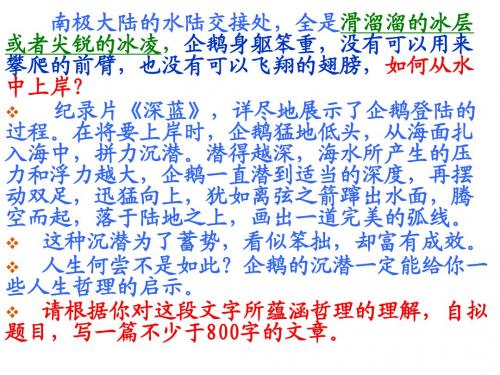 南极大陆的水陆交接处，全是滑溜溜的冰层
或者尖锐的冰凌，企鹅身躯笨重，没有可以用来
攀爬的前臂，也没有可以飞翔的翅膀，如何从水
中上岸？
❖ 纪录片《深蓝》，详尽地展示了企鹅登陆的
过程。在将要上岸时，企鹅猛地低头，从海面扎
入海中，拼力沉潜。潜得越深，海水所产生的压
力和浮力越大，企鹅一直潜到适当的深度，再摆
动双足，迅猛向上，犹如离弦之箭蹿出水面，腾
空而起，落于陆地之上，画出一道完美的弧线。
❖ 这种沉潜为了蓄势，看似笨拙，却富有成效。
❖ 人生何尝不是如此？企鹅的沉潜一定能给你一
些人生哲理的启示。
❖ 请根据你对这段文字所蕴涵哲理的理解，自拟
题目，写一篇不少于800字的文章。